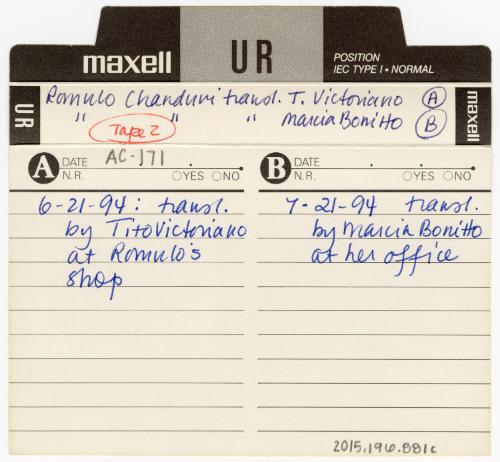 maxell UR POSITION
IEC TYPE I • NORMAL
UR Romulo Chanduvi transl. T. Victoriano Ⓐ maxell
" " " Marcia Bonitto Ⓑ
Tape 2
A DATE AC-171
N.R. ○YES ○NO
6-21-94: transl.
by Tito Victoriano
at Romulo's
shop
B DATE
N.R. ○YES ○NO
7-21-94 transl.
by Marcia Bonitto
at her office
2015.196.881c